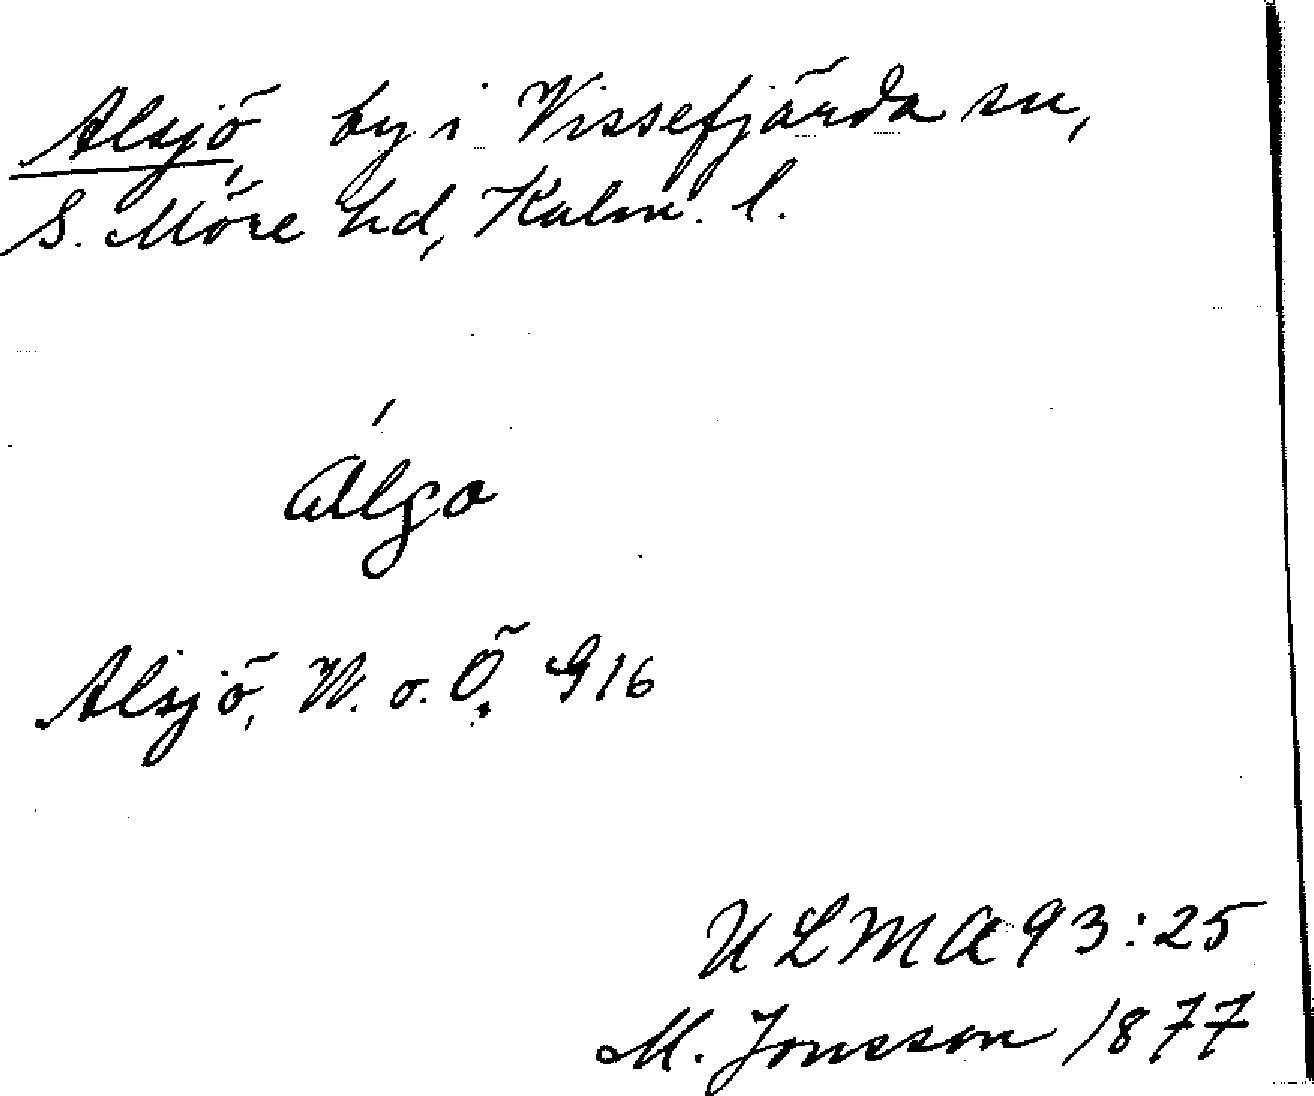 Alsjö, by i Vissefjärda sn,
S. Möre hd, Kalm. l.
Álgo
Alsjö, W. o. Ö. 916
ULMA 93:25
M. Jonsson 1877